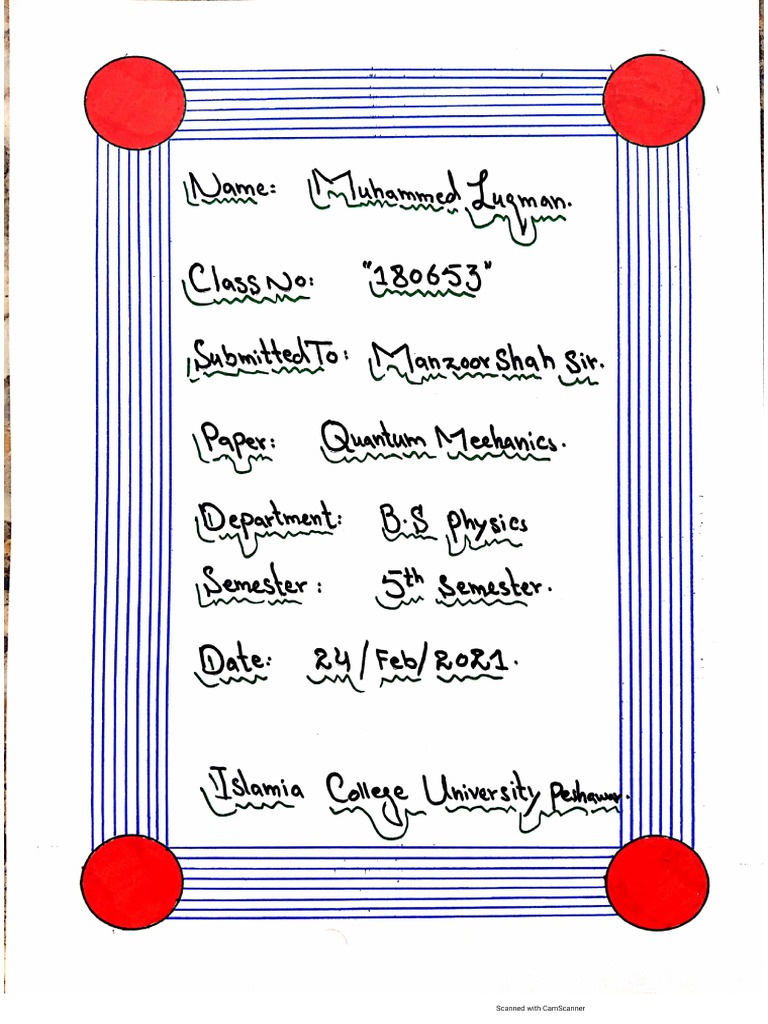 Name: Muhammed Luqman.
Class No: "180653"
Submitted To: Manzoor Shah Sir.
Paper: Quantum Mechanics.
Department: B.S Physics
Semester: 5th Semester.
Date: 24/Feb/2021.
Islamia College University Peshawar.
Scanned with CamScanner